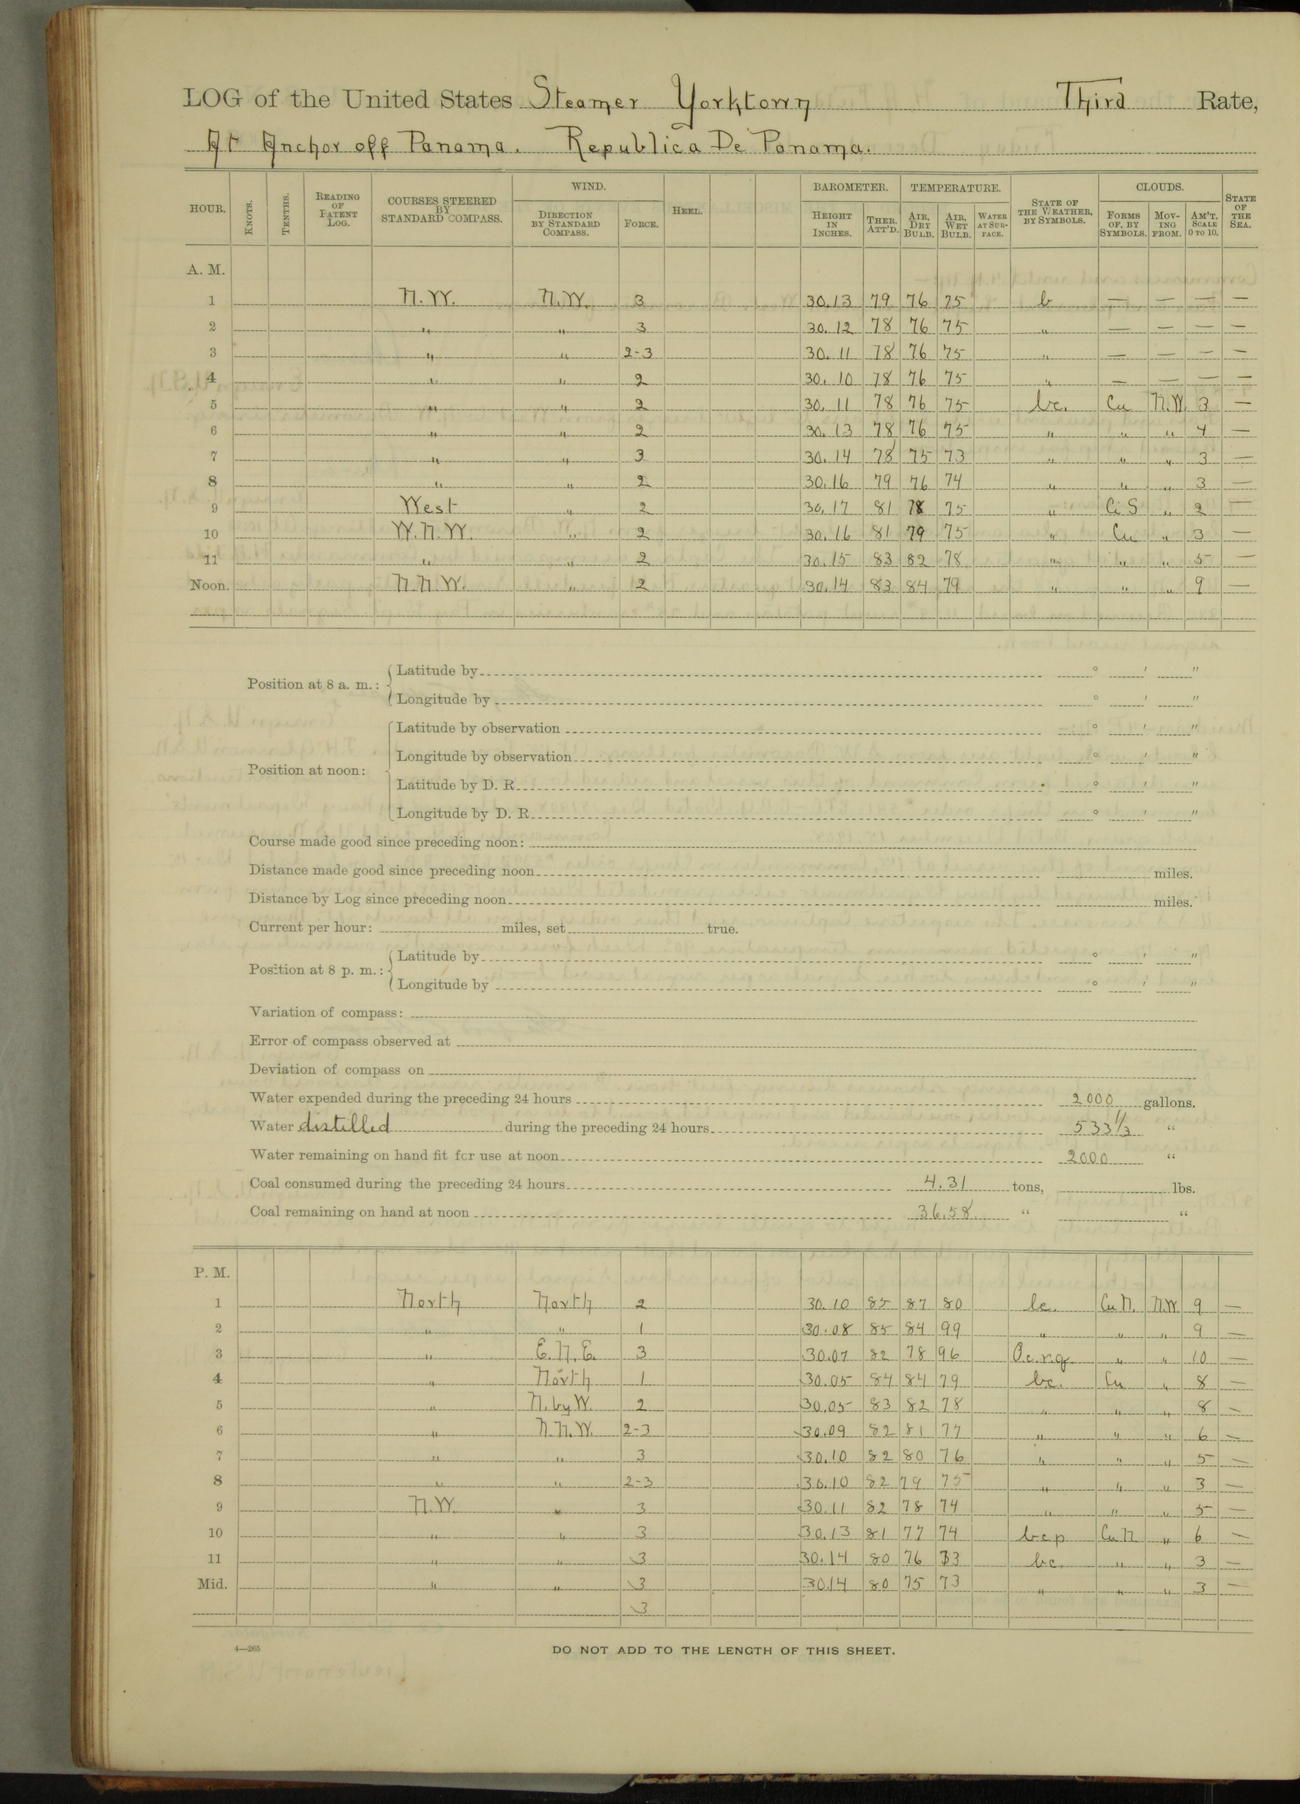 LOG of the United States Steamer Yorktown Third Rate,
At Anchor off Panama. Republica De Panama.
HOUR. KNOTS. TENTHS. READING OF PATENT LOG. COURSES STEERED BY STANDARD COMPASS. WIND. DIRECTION BY STANDARD COMPASS. FORCE. HEEL. BAROMETER. HEIGHT IN INCHES. THER. ATT'D. TEMPERATURE. AIR, DRY BULB. AIR, WET BULB. WATER AT SURFACE. STATE OF THE WEATHER, BY SYMBOLS. CLOUDS. FORMS OF, BY SYMBOLS. MOVING FROM. AM'T. SCALE 0 TO 10. STATE OF THE SEA.
A. M.
1 N.W. N.W. 3 30.13 79 76 75 b — — — —
2 " " 3 30.12 78 76 75 " — — — —
3 " " 2-3 30.11 78 76 75 " — — — —
4 " " 2 30.10 78 76 75 " — — — —
5 " " 2 30.11 78 76 75 bc. Cu N.W. 3 —
6 " " 2 30.13 78 76 75 " " " 4 —
7 " " 3 30.14 78 75 73 " " " 3 —
8 " " 2 30.16 79 76 74 " " " 3 —
9 West " 2 30.17 81 78 75 " Ci S " 2 —
10 W.N.W. " 2 30.16 81 79 75 " Cu " 3 —
11 " " 2 30.15 83 82 78 " " " 5 —
Noon. N.N.W. " 2 30.14 83 84 79 " " " 9 —
Position at 8 a. m.: Latitude by ° ' "
Longitude by ° ' "
Position at noon: Latitude by observation ° ' "
Longitude by observation ° ' "
Latitude by D. R. ° ' "
Longitude by D. R. ° ' "
Course made good since preceding noon:
Distance made good since preceding noon miles.
Distance by Log since preceding noon miles.
Current per hour: miles, set true.
Position at 8 p. m.: Latitude by ° ' "
Longitude by ° ' "
Variation of compass:
Error of compass observed at
Deviation of compass on
Water expended during the preceding 24 hours 2000 gallons.
Water distilled during the preceding 24 hours 533 1/3 "
Water remaining on hand fit for use at noon 2000 "
Coal consumed during the preceding 24 hours 4.31 tons, lbs.
Coal remaining on hand at noon 36.58 " "
P. M.
1 North North 2 30.10 85 87 80 bc. Cu N. N.W 9 —
2 " " 1 30.08 85 84 99 " " " 9 —
3 " E.N.E. 3 30.07 82 78 96 O.c.r.q. " " 10 —
4 " North 1 30.05 84 84 79 bc. Cu " 8 —
5 " N. by W. 2 30.05 83 82 78 " " " 8 —
6 " N.N.W. 2-3 30.09 82 81 77 " " " 6 —
7 " " 3 30.10 82 80 76 " " " 5 —
8 " " 2-3 30.10 82 79 75 " " " 3 —
9 N.W. " 3 30.11 82 78 74 " " " 5 —
10 " " 3 30.13 81 77 74 b c p Cu N " 6 —
11 " " 3 30.14 80 76 73 bc. " " 3 —
Mid. " " 3 30.14 80 75 73 " " " 3 —
3
4—265 DO NOT ADD TO THE LENGTH OF THIS SHEET.